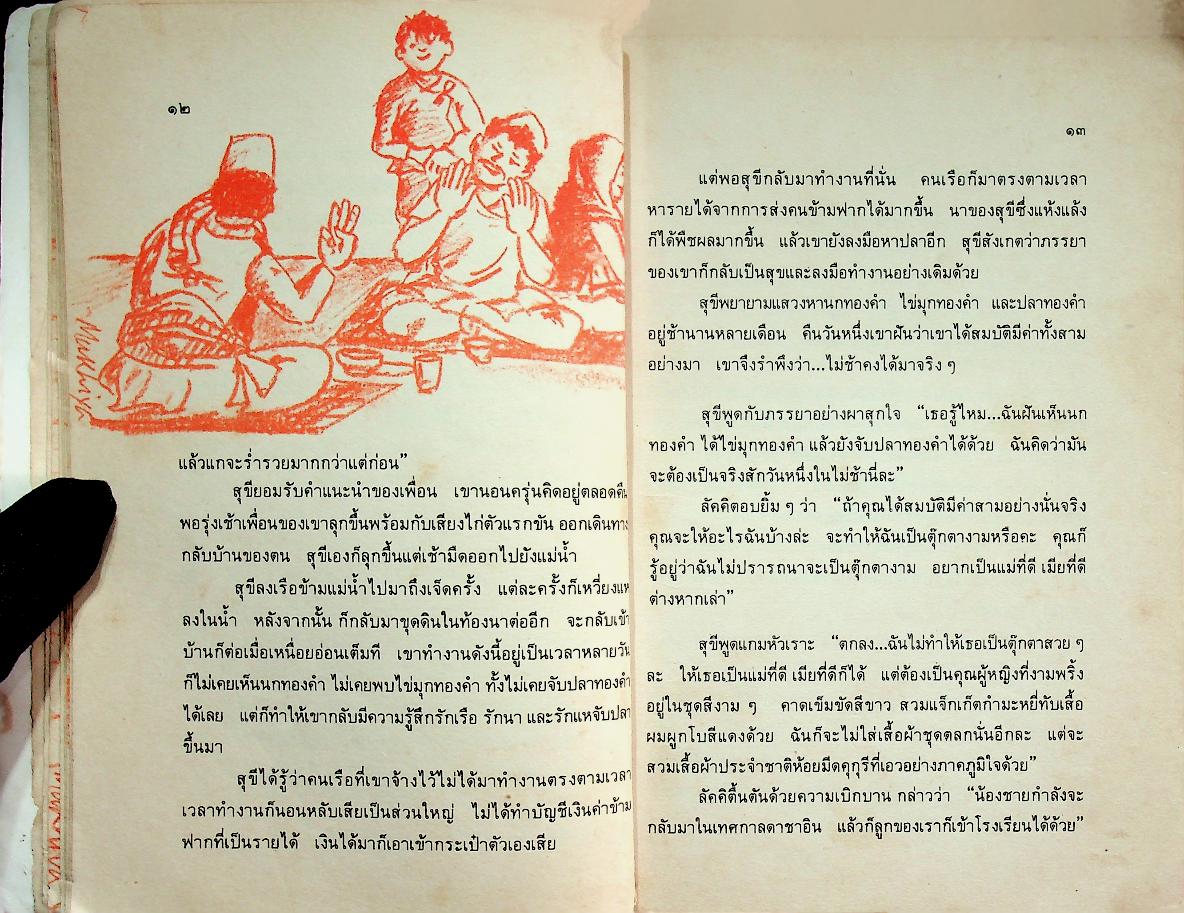 ๑๒
Muethiya
แล้วแกจะร่ำรวยมากกว่าแต่ก่อน”
สุขียอมรับคำแนะนำของเพื่อน เขานอนครุ่นคิดอยู่ตลอดคืน
พอรุ่งเช้าเพื่อนของเขาลุกขึ้นพร้อมกับเสียงไก่ตัวแรกขัน ออกเดินทาง
กลับบ้านของตน สุขีเองก็ลุกขึ้นแต่เช้ามืดออกไปยังแม่น้ำ
สุขีลงเรือข้ามแม่น้ำไปมาถึงเจ็ดครั้ง แต่ละครั้งก็เหวี่ยงแห
ลงในน้ำ หลังจากนั้น ก็กลับมาขุดดินในท้องนาต่ออีก จะกลับเข้า
บ้านก็ต่อเมื่อเหนื่อยอ่อนเต็มที เขาทำงานดังนี้อยู่เป็นเวลาหลายวัน
ก็ไม่เคยเห็นนกทองคำ ไม่เคยพบไข่มุกทองคำ ทั้งไม่เคยจับปลาทองคำ
ได้เลย แต่ก็ทำให้เขากลับมีความรู้สึกรักเรือ รักนา และรักแหจับปลา
ขึ้นมา
สุขีได้รู้ว่าคนเรือที่เขาจ้างไว้ไม่ได้มาทำงานตรงตามเวลา
เวลาทำงานก็นอนหลับเสียเป็นส่วนใหญ่ ไม่ได้ทำบัญชีเงินค่าข้าม
ฟากที่เป็นรายได้ เงินได้มาก็เอาเข้ากระเป๋าตัวเองเสีย
๑๓
แต่พอสุขีกลับมาทำงานที่นั่น คนเรือก็มาตรงตามเวลา
หารายได้จากการส่งคนข้ามฟากได้มากขึ้น นาของสุขีซึ่งแห้งแล้ง
ก็ได้พืชผลมากขึ้น แล้วเขายังลงมือหาปลาอีก สุขีสังเกตว่าภรรยา
ของเขาก็กลับเป็นสุขและลงมือทำงานอย่างเดิมด้วย
สุขีพยายามแสวงหานกทองคำ ไข่มุกทองคำ และปลาทองคำ
อยู่ช้านานหลายเดือน คืนวันหนึ่งเขาฝันว่าเขาได้สมบัติมีค่าทั้งสาม
อย่างมา เขาจึงรำพึงว่า...ไม่ช้าคงได้มาจริง ๆ
สุขีพูดกับภรรยาอย่างผาสุกใจ “เธอรู้ไหม...ฉันฝันเห็นนก
ทองคำ ได้ไข่มุกทองคำ แล้วยังจับปลาทองคำได้ด้วย ฉันคิดว่ามัน
จะต้องเป็นจริงสักวันหนึ่งในไม่ช้านี่ละ”
ลัคคิตอบยิ้ม ๆ ว่า “ถ้าคุณได้สมบัติมีค่าสามอย่างนั่นจริง
คุณจะให้อะไรฉันบ้างล่ะ จะทำให้ฉันเป็นตุ๊กตางามหรือคะ คุณก็
รู้อยู่ว่าฉันไม่ปรารถนาจะเป็นตุ๊กตางาม อยากเป็นแม่ที่ดี เมียที่ดี
ต่างหากเล่า”
สุขีพูดแกมหัวเราะ “ตกลง...ฉันไม่ทำให้เธอเป็นตุ๊กตาสวย ๆ
ละ ให้เธอเป็นแม่ที่ดี เมียที่ดีก็ได้ แต่ต้องเป็นคุณผู้หญิงที่งามพริ้ง
อยู่ในชุดสีงาม ๆ คาดเข็มขัดสีขาว สวมแจ็กเก็ตกำมะหยี่ทับเสื้อ
ผมผูกโบสีแดงด้วย ฉันก็จะไม่ใส่เสื้อผ้าชุดตลกนั่นอีกละ แต่จะ
สวมเสื้อผ้าประจำชาติห้อยมีดคุกุรีที่เอวอย่างภาคภูมิใจด้วย”
ลัคคิตื้นตันด้วยความเบิกบาน กล่าวว่า “น้องชายกำลังจะ
กลับมาในเทศกาลดาชาอิน แล้วก็ลูกของเราก็เข้าโรงเรียนได้ด้วย”